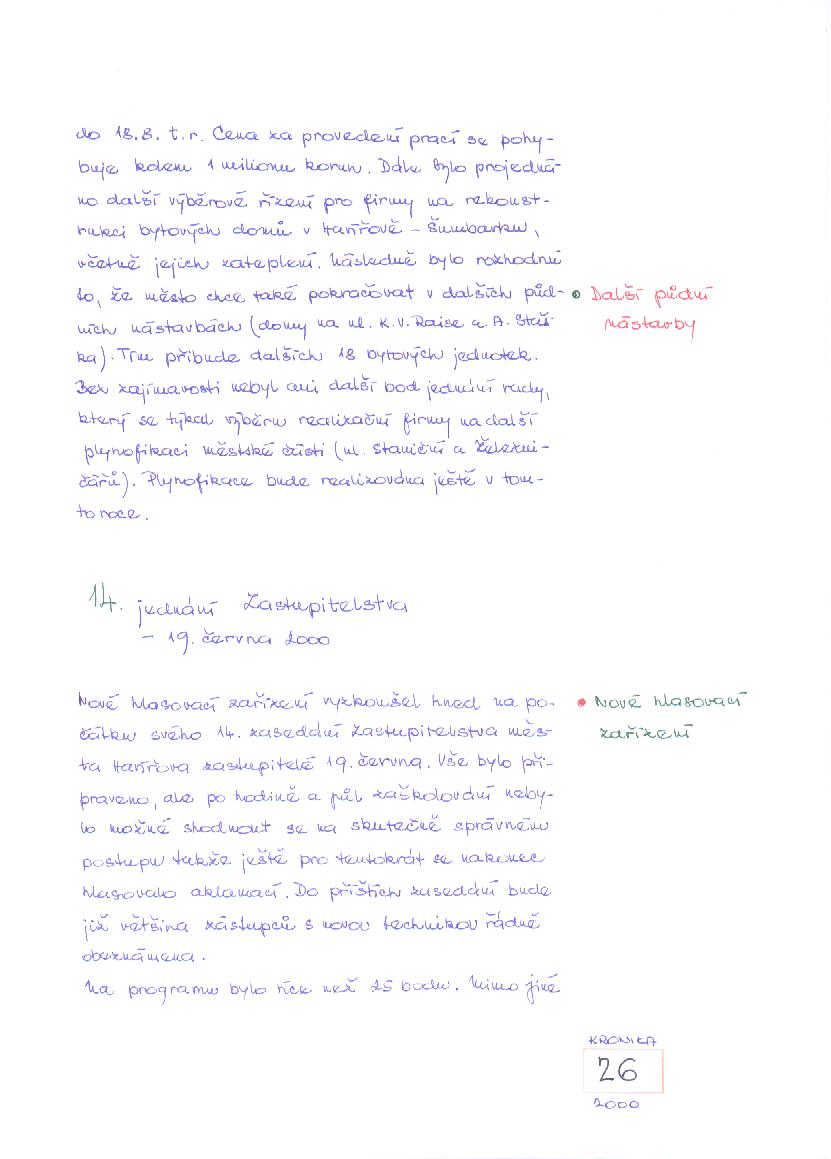 do 18.8. t.r. Cena za provedení prací se pohy-
buje kolem 1 milionu korun. Dále bylo projedná-
no další výběrové řízení pro firmy na rekonst-
rukci bytových domů v Havířově - Šumbarku,
včetně jejich zateplení. Následně bylo rozhodnu
to, že město chce také pokračovat v dalších půd-
ních nástavbách (domy na ul. K.V. Raise a A. Staš-
ka). Tím přibude dalších 18 bytových jednotek.
Bez zajímavosti nebyl ani další bod jednání rady,
který se týkal výběru realizační firmy na další
plynofikaci městské části (ul. Staniční a Železni-
čářů). Plynofikace bude realizována ještě v tom-
to roce.
Další půdní
nástavby
14. jednání Zastupitelstva
- 19. června 2000
Nové hlasovací zařízení vyzkoušel hned na po-
čátku svého 14. zasedání Zastupitelstva měs-
ta Havířova zastupitelé 19. června. Vše bylo při-
praveno, ale po hodině a půl zaškolování neby-
lo možné shodnout se na skutečně správném
postupu takže ještě pro tentokrát se nakonec
hlasovalo aklamací. Do příštích zasedání bude
již většina zástupců s novou technikou řádně
obeznámena.
Na programu bylo více než 25 bodu. Mimo jiné
Nové hlasovací
zařízení
KRONIKA
26
2000